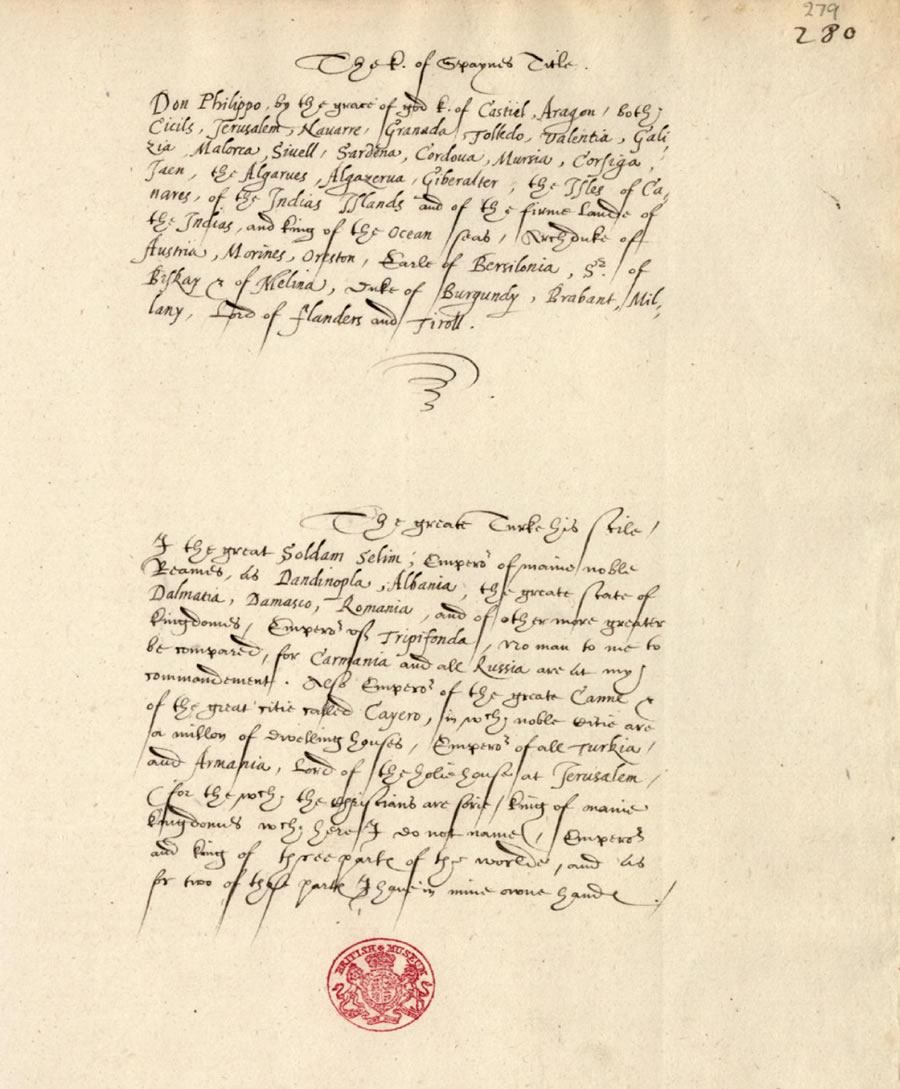 279
280
The k. of Spaynes Title.
Don Philippo, by the grace of god k. of Castiel, Aragon, both
Cicils, Jerusalem, Nauarre, Granada, Tolledo, Valentia, Gali
zia, Malorca, Siuell, Sardena, Cordoua, Mursia, Corsiga,
Jaen, the Algarues, Algazerua, Giberalter, the Isles of Ca,
nares, of the Indias Islands and of the firme Lande of
the Indias, and king of the Ocean seas, Archduke of
Austria, Morines, Oreston, Earle of Bersilonia, Sr. of
Biskay & of Melina, Duke of Burgundy, Brabant, Mil,
lany, Lord of flanders and Tiroll.
The greate Turke his stile,
I the great Soldam Selim, Emperor of manie noble
Reames, as Dandinopla, Albania, the greate state of
Dalmatia, Damasco, Romania, and of other more greater
kingdomes, Emperor of Tripifonda, No man to me to
be compared, for Carmania and all Russia are at my
commandement. Also Emperor of the greate Canne &
of the great citie called Cayero, in wch noble Citie are
a millon of dwelling houses, Emperor of all Turkia,
and Armania, Lord of the holie house at Jerusalem,
(for the wch the Christians are sorie, king of manie
kingdomes wch here I do not name(, Emperor
and king of three parte of the worlde, and as
for two of thes parte I haue in mine owne hande.
BRITISH MUSEUM